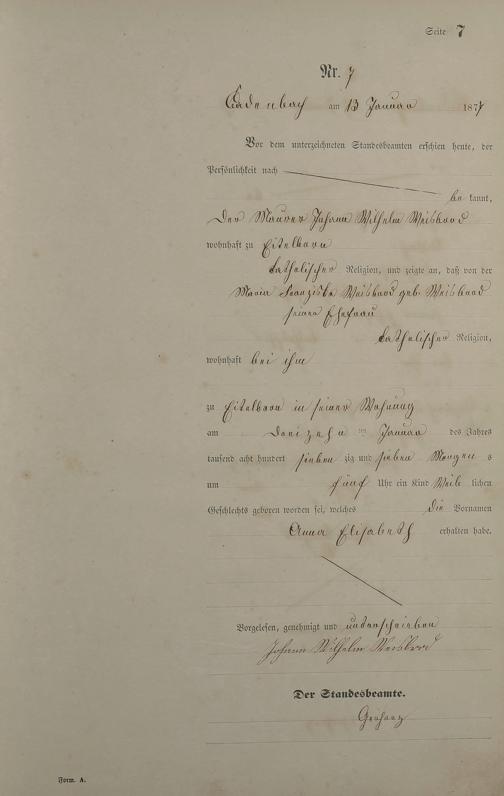 Seite 7
Nr. 7
Cadenbach am 13 Januar 1877
Vor dem unterzeichneten Standesbeamten erschien heute, der
Persönlichkeit nach
bekannt,
der Maurer Johann Wilhelm Weisbrod
wohnhaft zu Eitelborn
katholischer Religion, und zeigte an, daß von der
Maria Franziska Weisbrod geb. Weisbrod
seiner Ehefrau
katholischer Religion,
wohnhaft bei ihm
zu Eitelborn in seiner Wohnung
am dreizehn ten Januar des Jahres
tausend acht hundert siebenzig und sieben Morgens
um fünf Uhr ein Kind Weiblichen
Geschlechts geboren worden sei, welches die Vornamen
Anna Elisabeth erhalten habe.
Vorgelesen, genehmigt und unterschrieben
Johann Wilhelm Weisbrod
Der Standesbeamte.
Form. A.